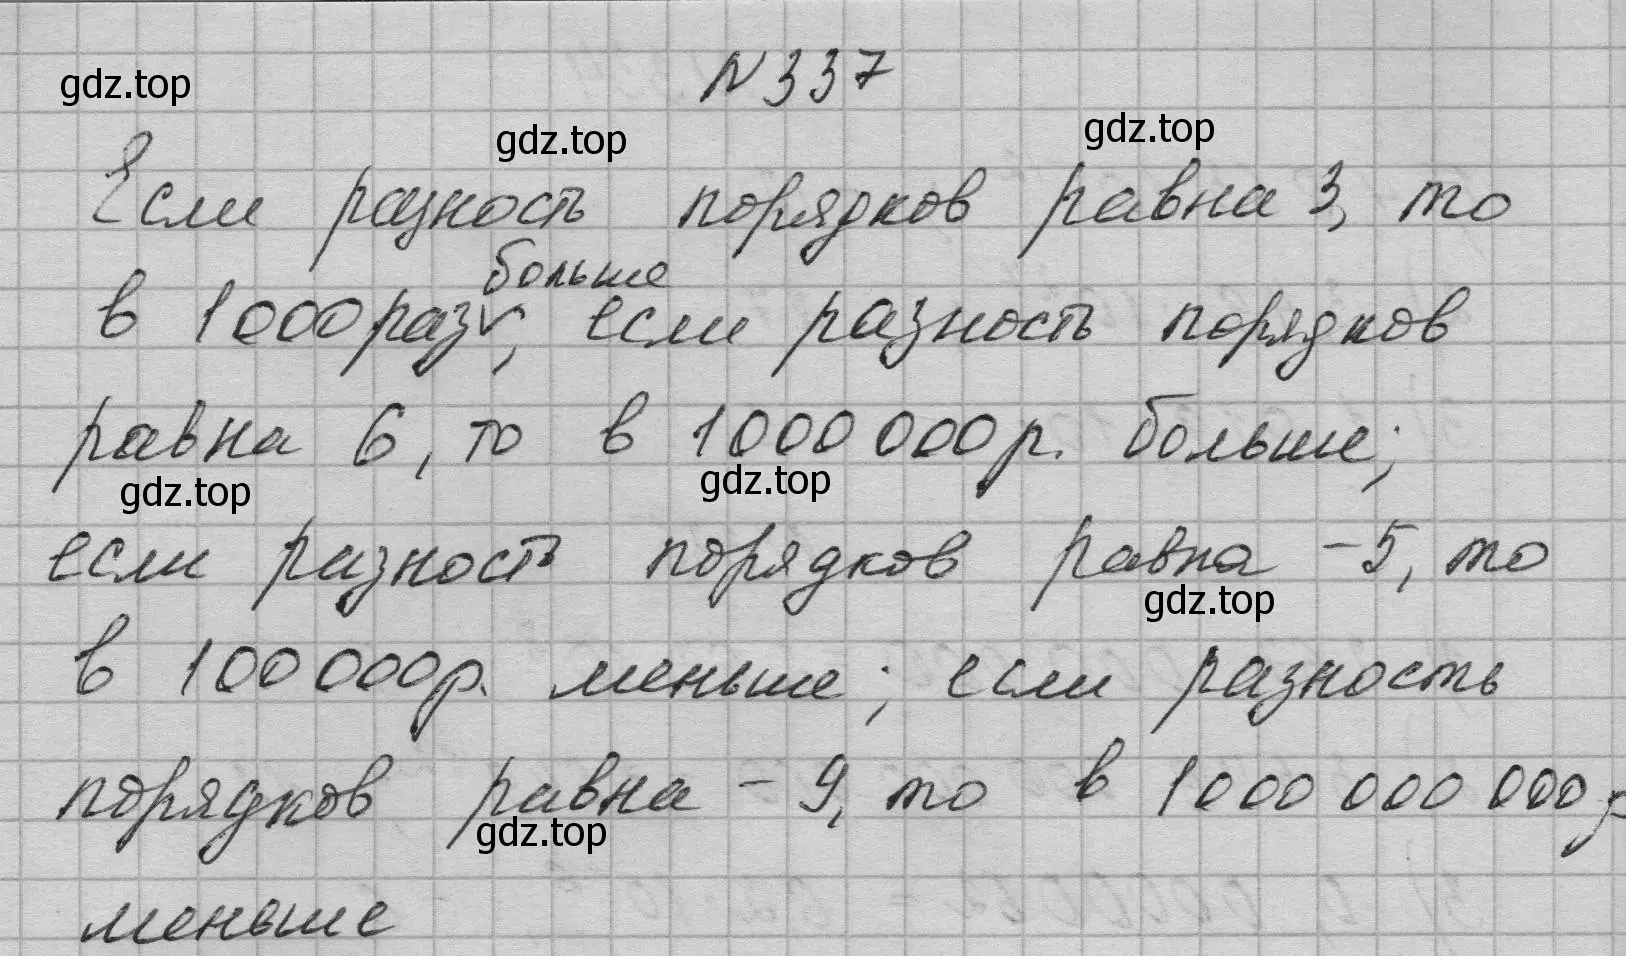 N 337
gdz.top
gdz.top
gdz.top
Если разность порядков равна 3, то
больше
в 1000 раз; если разность порядков
равна 6, то в 1000 000 р. больше;
gdz.top
gdz.top
если разность порядков равна -5, то
gdz.top
в 100 000 р. меньше; если разность
порядков равна -9, то в 1000 000 000 р
gdz.top
меньше